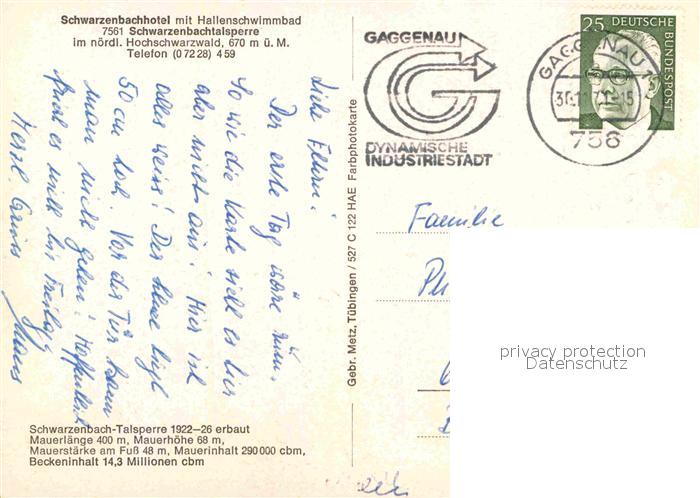 Schwarzenbachhotel mit Hallenschwimmbad
7561 Schwarzenbachtalsperre
im nördl. Hochschwarzwald, 670 m ü. M.
Telefon (0 72 28) 4 59
Liebe Eltern!
Der erste Tag wäre rum.
So wie die Karte sieht es hier
aber nicht aus! Hier ist
alles weiss! Der Schnee liegt
50 cm hoch. Vor der Tür kann
man nicht gehen! Hoffentlich
friert es nicht bis Freitag
Herzl. Grüße
Schwarzenbach-Talsperre 1922–26 erbaut
Mauerlänge 400 m, Mauerhöhe 68 m,
Mauerstärke am Fuß 48 m, Mauerinhalt 290 000 cbm,
Beckeninhalt 14,3 Millionen cbm
Gebr. Metz, Tübingen / 527 C 122 HAE Farbphotokarte
GAGGENAU
DYNAMISCHE
INDUSTRIESTADT
GAGGENAU
758
25 DEUTSCHE
BUNDESPOST
Familie
privacy protection
Datenschutz